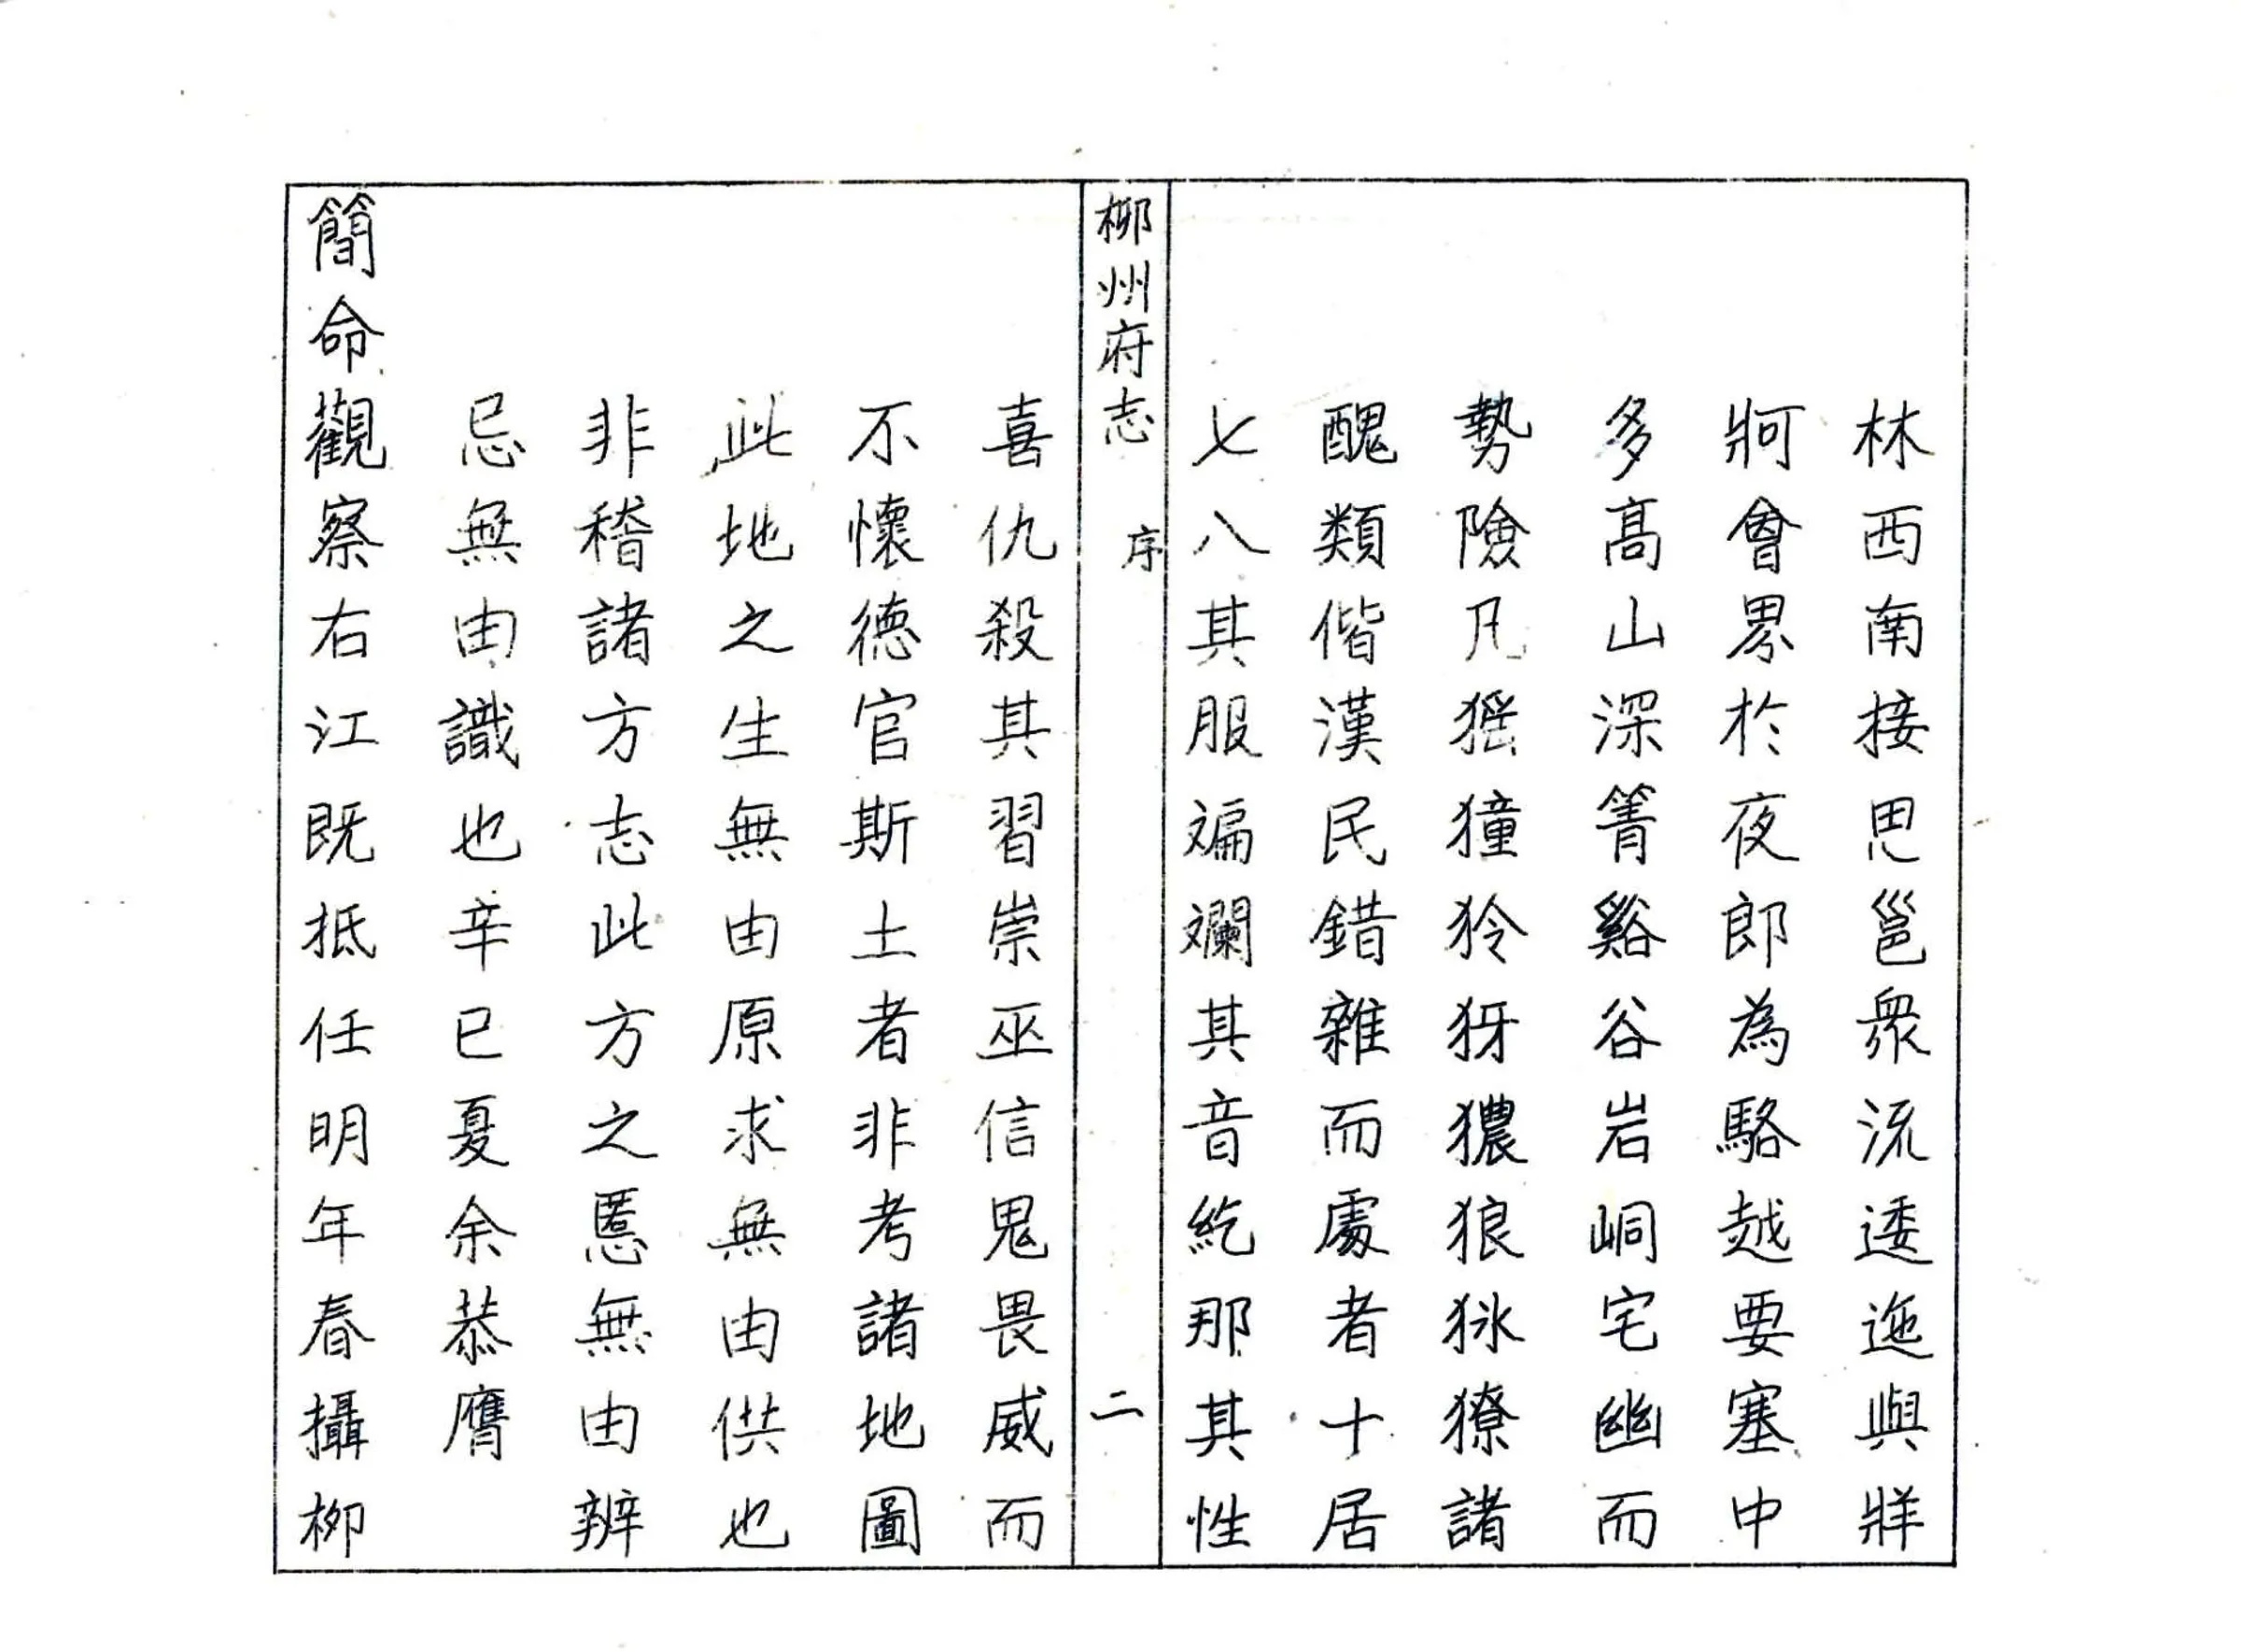 林西南接思邕衆流逶迤與牂
牁會界於夜郎為駱越要塞中
多高山深箐谿谷岩峒宅幽而
勢險凡猺獞狑犽獽狼㺬獠諸
醜類偕漢民錯雜而處者十居
七八其服斒斕其音紇那其性
柳州府志 序 二
喜仇殺其習崇巫信鬼畏威而
不懷德官斯土者非考諸地圖
此地之生無由原求無由供也
非稽諸方志此方之慝無由辨
忌無由識也辛巳夏余恭膺
簡命觀察右江既抵任明年春攝柳